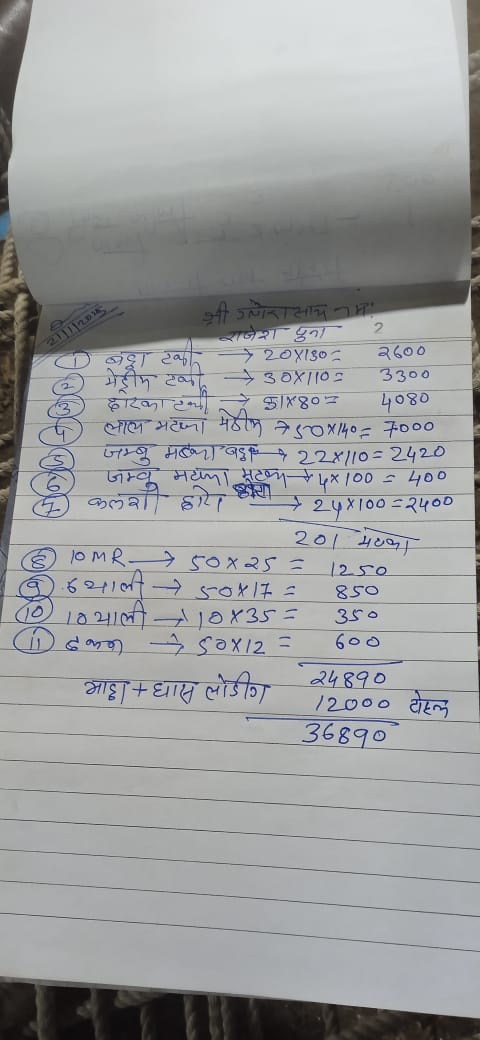 21/1/2025
श्री गणेशाय नमः
राजेश पुना
① बड़ा टंकी → 20×130= 2600
② मेड्रीम टंकी → 30×110= 3300
③ टंकी → 51×80= 4080
4 लाल मटका मेडीम → 50×140= 7000
5 जम्बु मटका बड़ा → 22×110= 2420
6 जम्बु मटका → 4×100= 400
7 कलशी छोटा → 24×100=2400
201 मटका
8 10 MR → 50×25= 1250
9 6 थाली → 50×17= 850
10 10 थाली → 10×35= 350
11 ढक्कन → 50×12= 600
24890
भाड़ा + घास लोडींग 12000 टोटल
36890